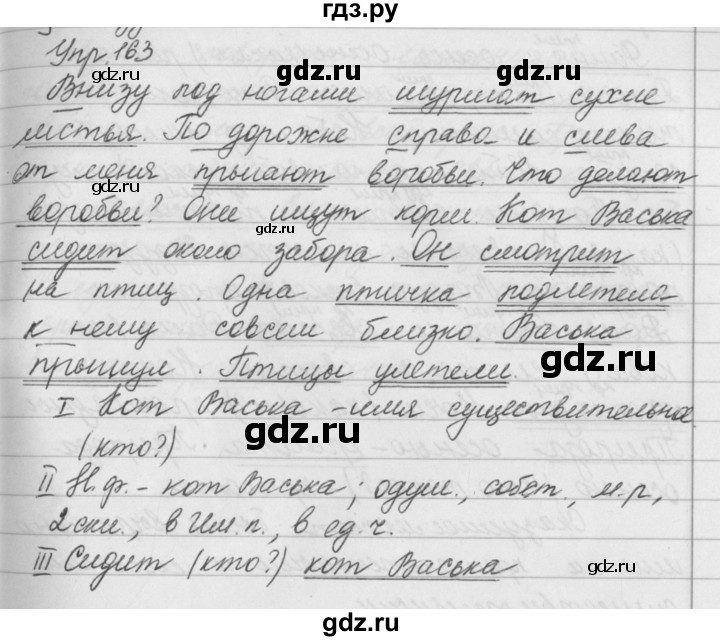 гдз.ру
Упр. 163
Внизу под ногами шуршат сухие
листья. По дорожке справа и слева
от меня прыгают воробьи. Что делают
воробьи? Они ищут корм. Кот Васька
сидит около забора. Он смотрит
на птиц. Одна птичка подлетела
к нему совсем близко. Васька
прыгнул. Птицы улетели.
I Кот Васька - имя существительное
(кто?)
II Н.ф. - кот Васька; одуш., собст., м.р.,
2 скл., в Им.п., в ед.ч.
III Сидит (кто?) кот Васька
gdz.top
gdz.top
gdz.top
gdz.top
gdz.top
gdz.top
gdz.top
gdz.top
gdz.top
gdz.top
gdz.top